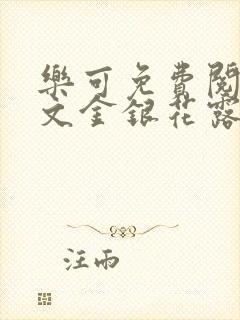 樂可免費閱
文全銀花露
汪雨